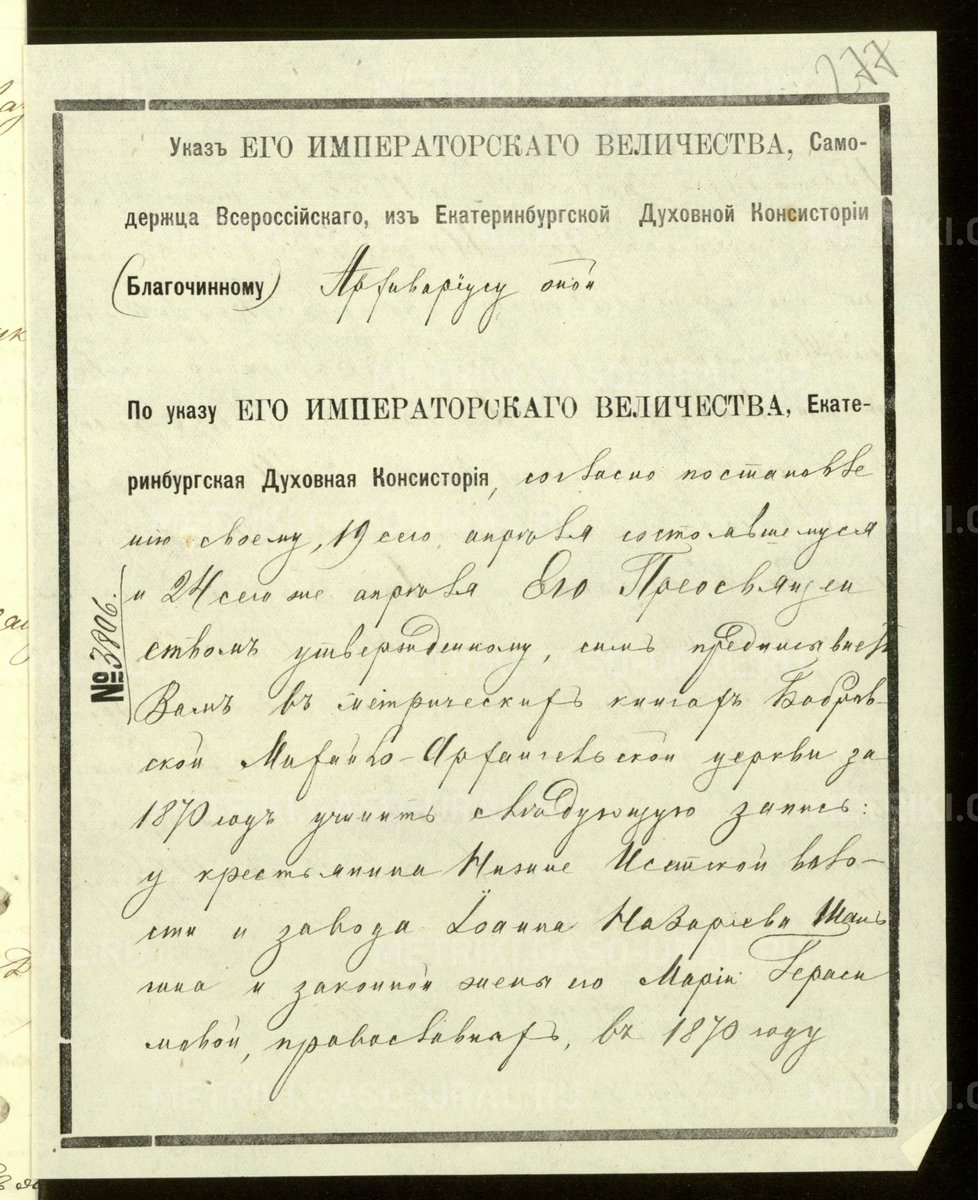 277
Указъ ЕГО ИМПЕРАТОРСКАГО ВЕЛИЧЕСТВА, Само-
держца Всероссійскаго, изъ Екатеринбургской Духовной Консисторіи
(Благочинному) Архиваріусу оной
По указу ЕГО ИМПЕРАТОРСКАГО ВЕЛИЧЕСТВА, Екате-
ринбургская Духовная Консисторія, согласно постановле
нію своему, 19 сего апрѣля состоявшемуся
и 24 сего же апрѣля Его Преосвящен
ствомъ утвержденному, симъ предписываетъ
№ 3806.
Вамъ въ метрическихъ книгахъ Бобров-
ской Михайло-Архангельской церкви за
1870 годъ учинить слѣдующую запись:
у крестьянина Нижне Исетской воло-
сти и завода Іоанна Назаріева
и законной жены его Маріи Гераси
мовой, православныхъ, въ 1870 году